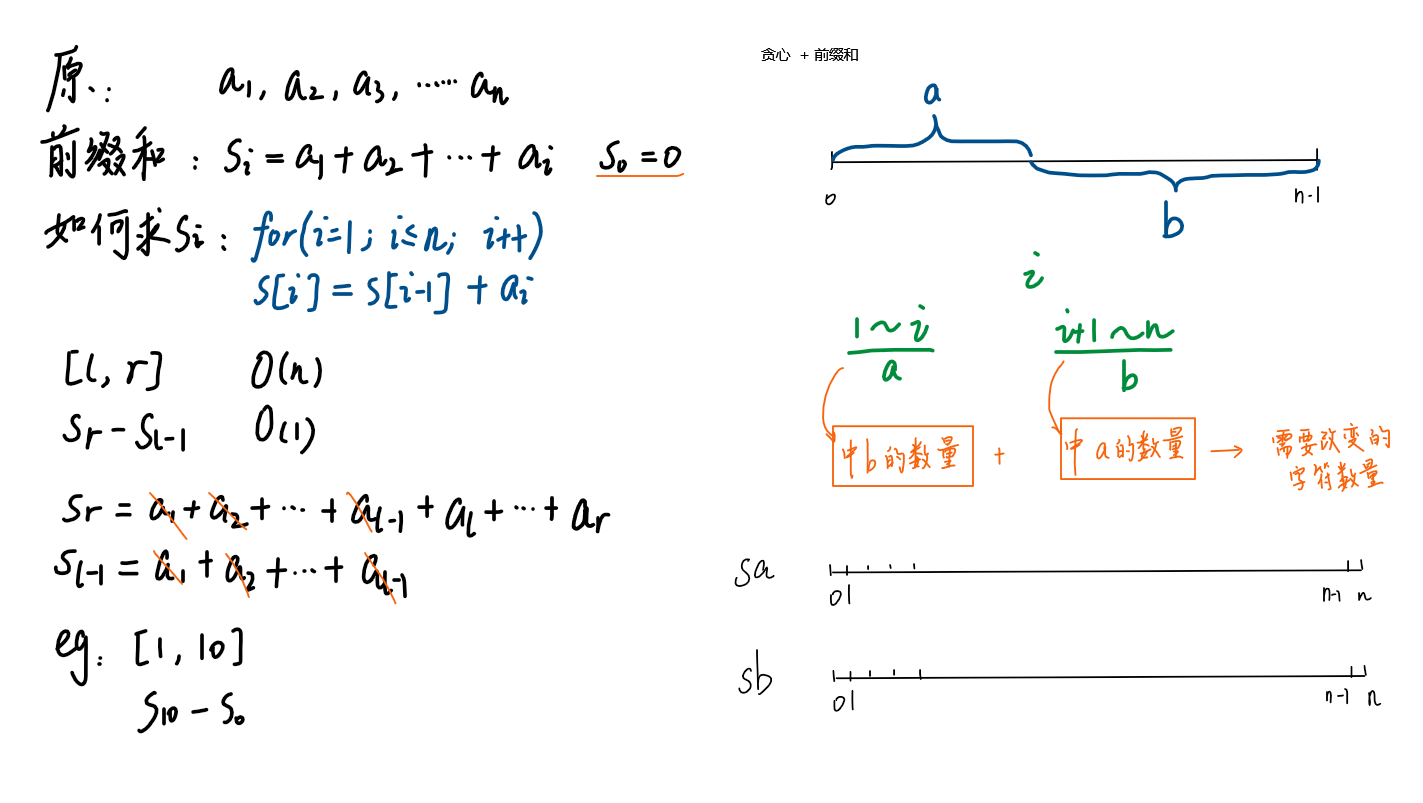 原: a₁, a₂, a₃, …… aₙ
前缀和: Sᵢ = a₁ + a₂ + … + aᵢ  S₀ = 0
如何求Sᵢ: for(i=1; i≤n; i++)
S[i] = S[i-1] + aᵢ
[l, r]  O(n)
Sr - Sl-1  O(1)
Sr = a₁ + a₂ + … + al-1 + al + … + ar
Sl-1 = a₁ + a₂ + … + al-1
eg: [1, 10]
S₁₀ - S₀
贪心 + 前缀和
a
0 n-1
b
i
1~i i+1~n
a b
中b的数量 + 中a的数量 → 需要改变的
字符数量
sa
0 1 n-1 n
sb
0 1 n-1 n